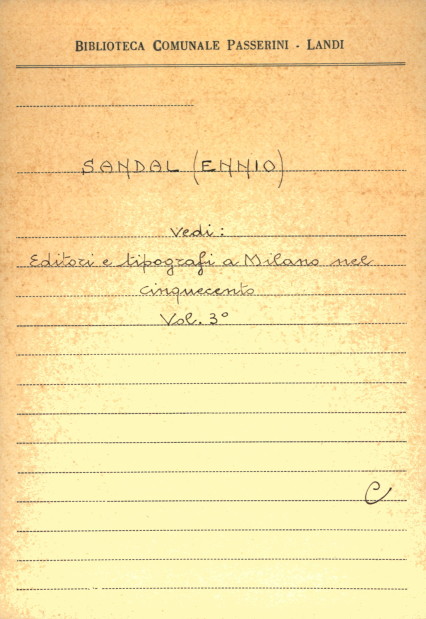 BIBLIOTECA COMUNALE PASSERINI - LANDI
SANDAL (ENNIO)
Vedi:
Editori e tipografi a Milano nel
cinquecento
Vol. 3°
C